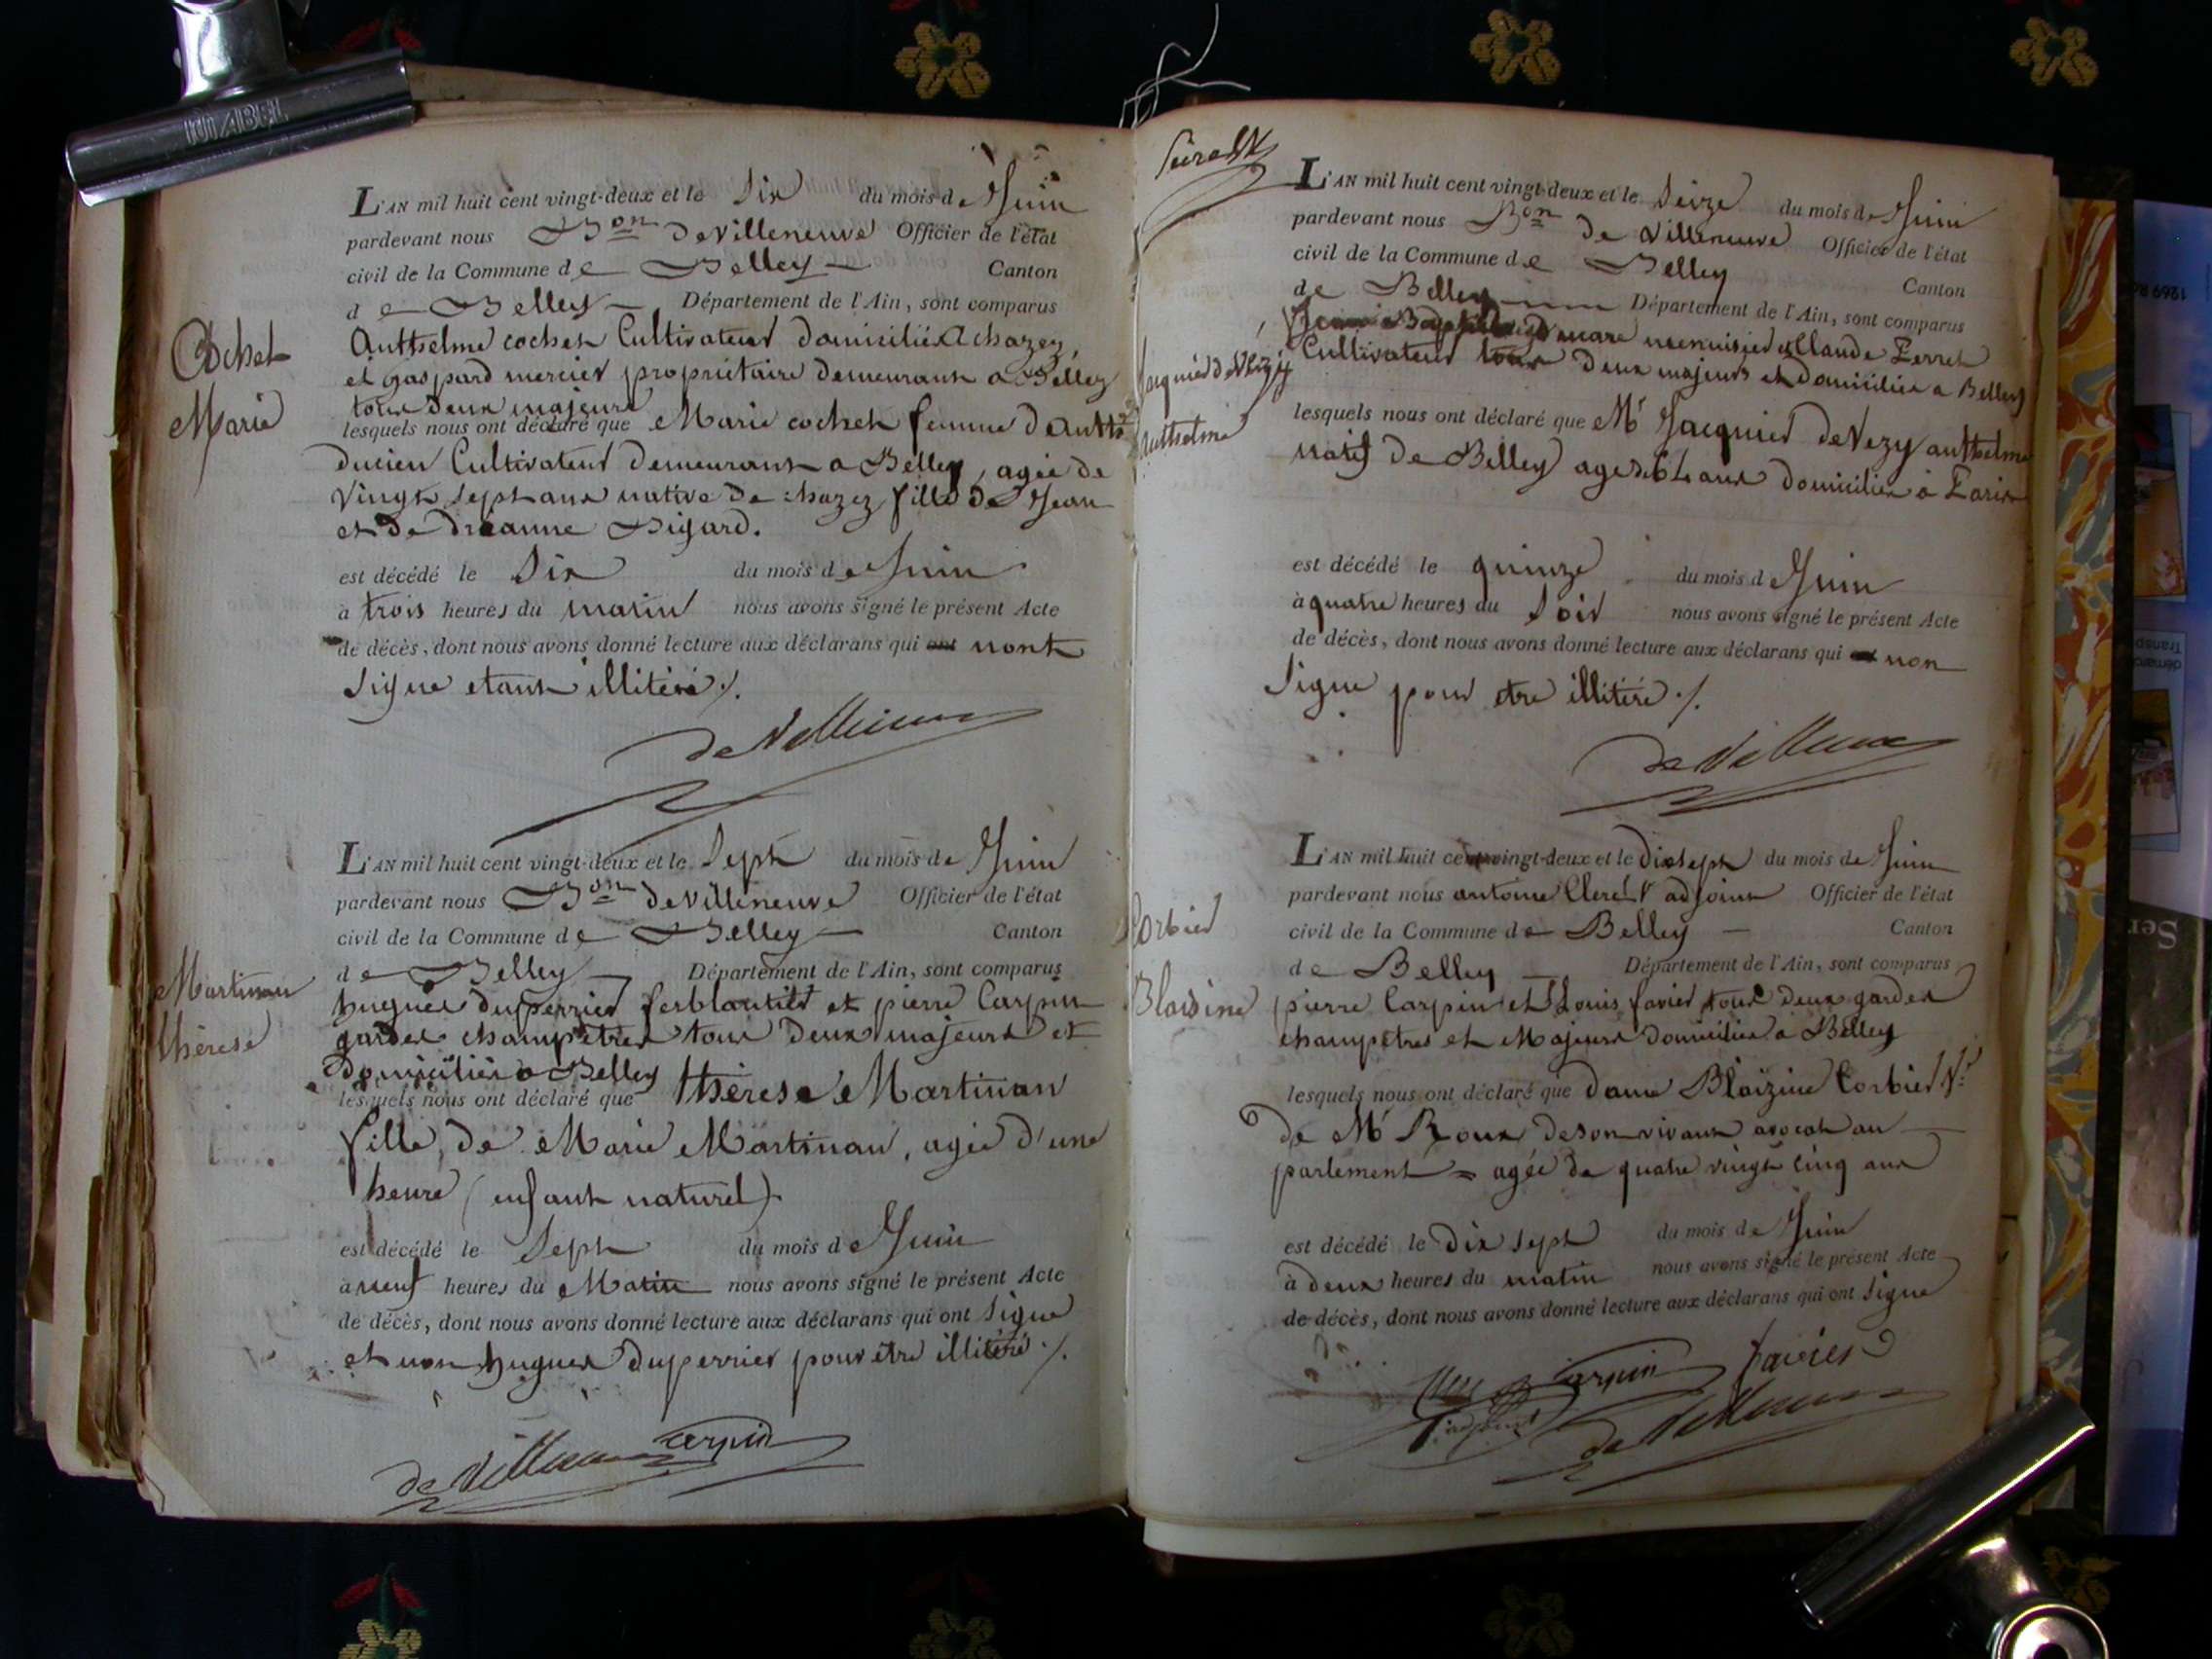 L'AN mil huit cent vingt-deux et le Six du mois de Juin
pardevant nous Bon deVilleneuve Officier de l'état
civil de la Commune de Belley Canton
de Belley Département de l'Ain, sont comparus
Cochet
Marie
Anthelme cochet Cultivateur domicilié A chazey,
et gaspard mercier propriétaire demeurant a Belley
tous deux majeurs
lesquels nous ont déclaré que Marie cochet femme d'anthe
ducien Cultivateur demeurant a Belley, agée de
Vingt sept ans native de chazey fille de Jean
et de Bigard.
est décédé le Six du mois de Juin
à trois heures du matin nous avons signé le présent Acte
de décès, dont nous avons donné lecture aux déclarans qui ont nont
signe etant illitéré ./.
de Villeneuve
L'AN mil huit cent vingt-deux et le Sept du mois de Juin
pardevant nous Bon deVilleneuve Officier de l'état
civil de la Commune de Belley Canton
de Belley Département de l'Ain, sont comparus
Martinan
thérèse
hugues duperrier ferblantier et pierre Carpin
gardes champêtres tous deux majeurs et
domiciliés a Belley
lesquels nous ont déclaré que thérèse Martinan
fille, de Marie Martinan, agée d'une
heure (enfant naturel).
est décédé le Sept du mois de Juin
à neuf heures du Matin nous avons signé le présent Acte
de décès, dont nous avons donné lecture aux déclarans qui ont Signe
et non hugues duperrier pour être illitéré ./.
de Villeneuve Carpin
L'AN mil huit cent vingt-deux et le Seize du mois de Juin
pardevant nous Bon de Villeneuve Officier de l'état
civil de la Commune de Belley Canton
de Belley Département de l'Ain, sont comparus
Jacquier de Vezy
Anthelme
Jean menuisier et Claude Perret
Cultivateur tous deux majeurs et domiciliés a Belley
lesquels nous ont déclaré que Mr Jacquier deVezy anthelme
natif de Belley age de ans domicilié à Paris
est décédé le quinze du mois de Juin
à quatre heures du Soir nous avons signé le présent Acte
de décès, dont nous avons donné lecture aux déclarans qui ont non
Signe pour etre illitéré ./.
de Villeneuve
L'AN mil huit cent vingt-deux et le dix sept du mois de Juin
pardevant nous antoine Clerc adjoint Officier de l'état
civil de la Commune de Belley Canton
de Belley Département de l'Ain, sont comparus
Corbier
Blaisine
pierre Carpin et Louis favier tous deux gardes
champetres et Majeurs domiciliés à Belley
lesquels nous ont déclaré que dame Blaizine Corbier Ve
de Mr Roux de son vivant avocat au
parlement = agée de quatre vingt cinq ans
est décédé le Dix sept du mois de Juin
à deux heures du matin nous avons signé le présent Acte
de décès, dont nous avons donné lecture aux déclarans qui ont Signe
Clerc Carpin favier
adjoint de Villeneuve